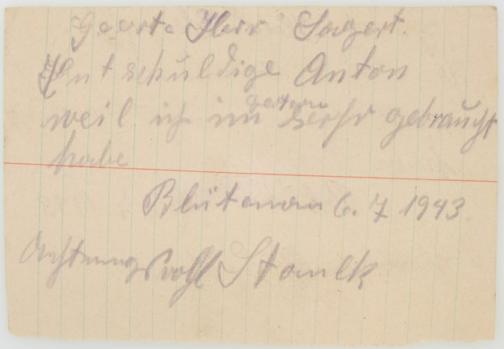 Geerte Herr Sagert.
Entschuldige Anton
weil ich im gestern gebraucht
habe
Blütenau 6. 7 1943.
Achtungsvohl Stanek